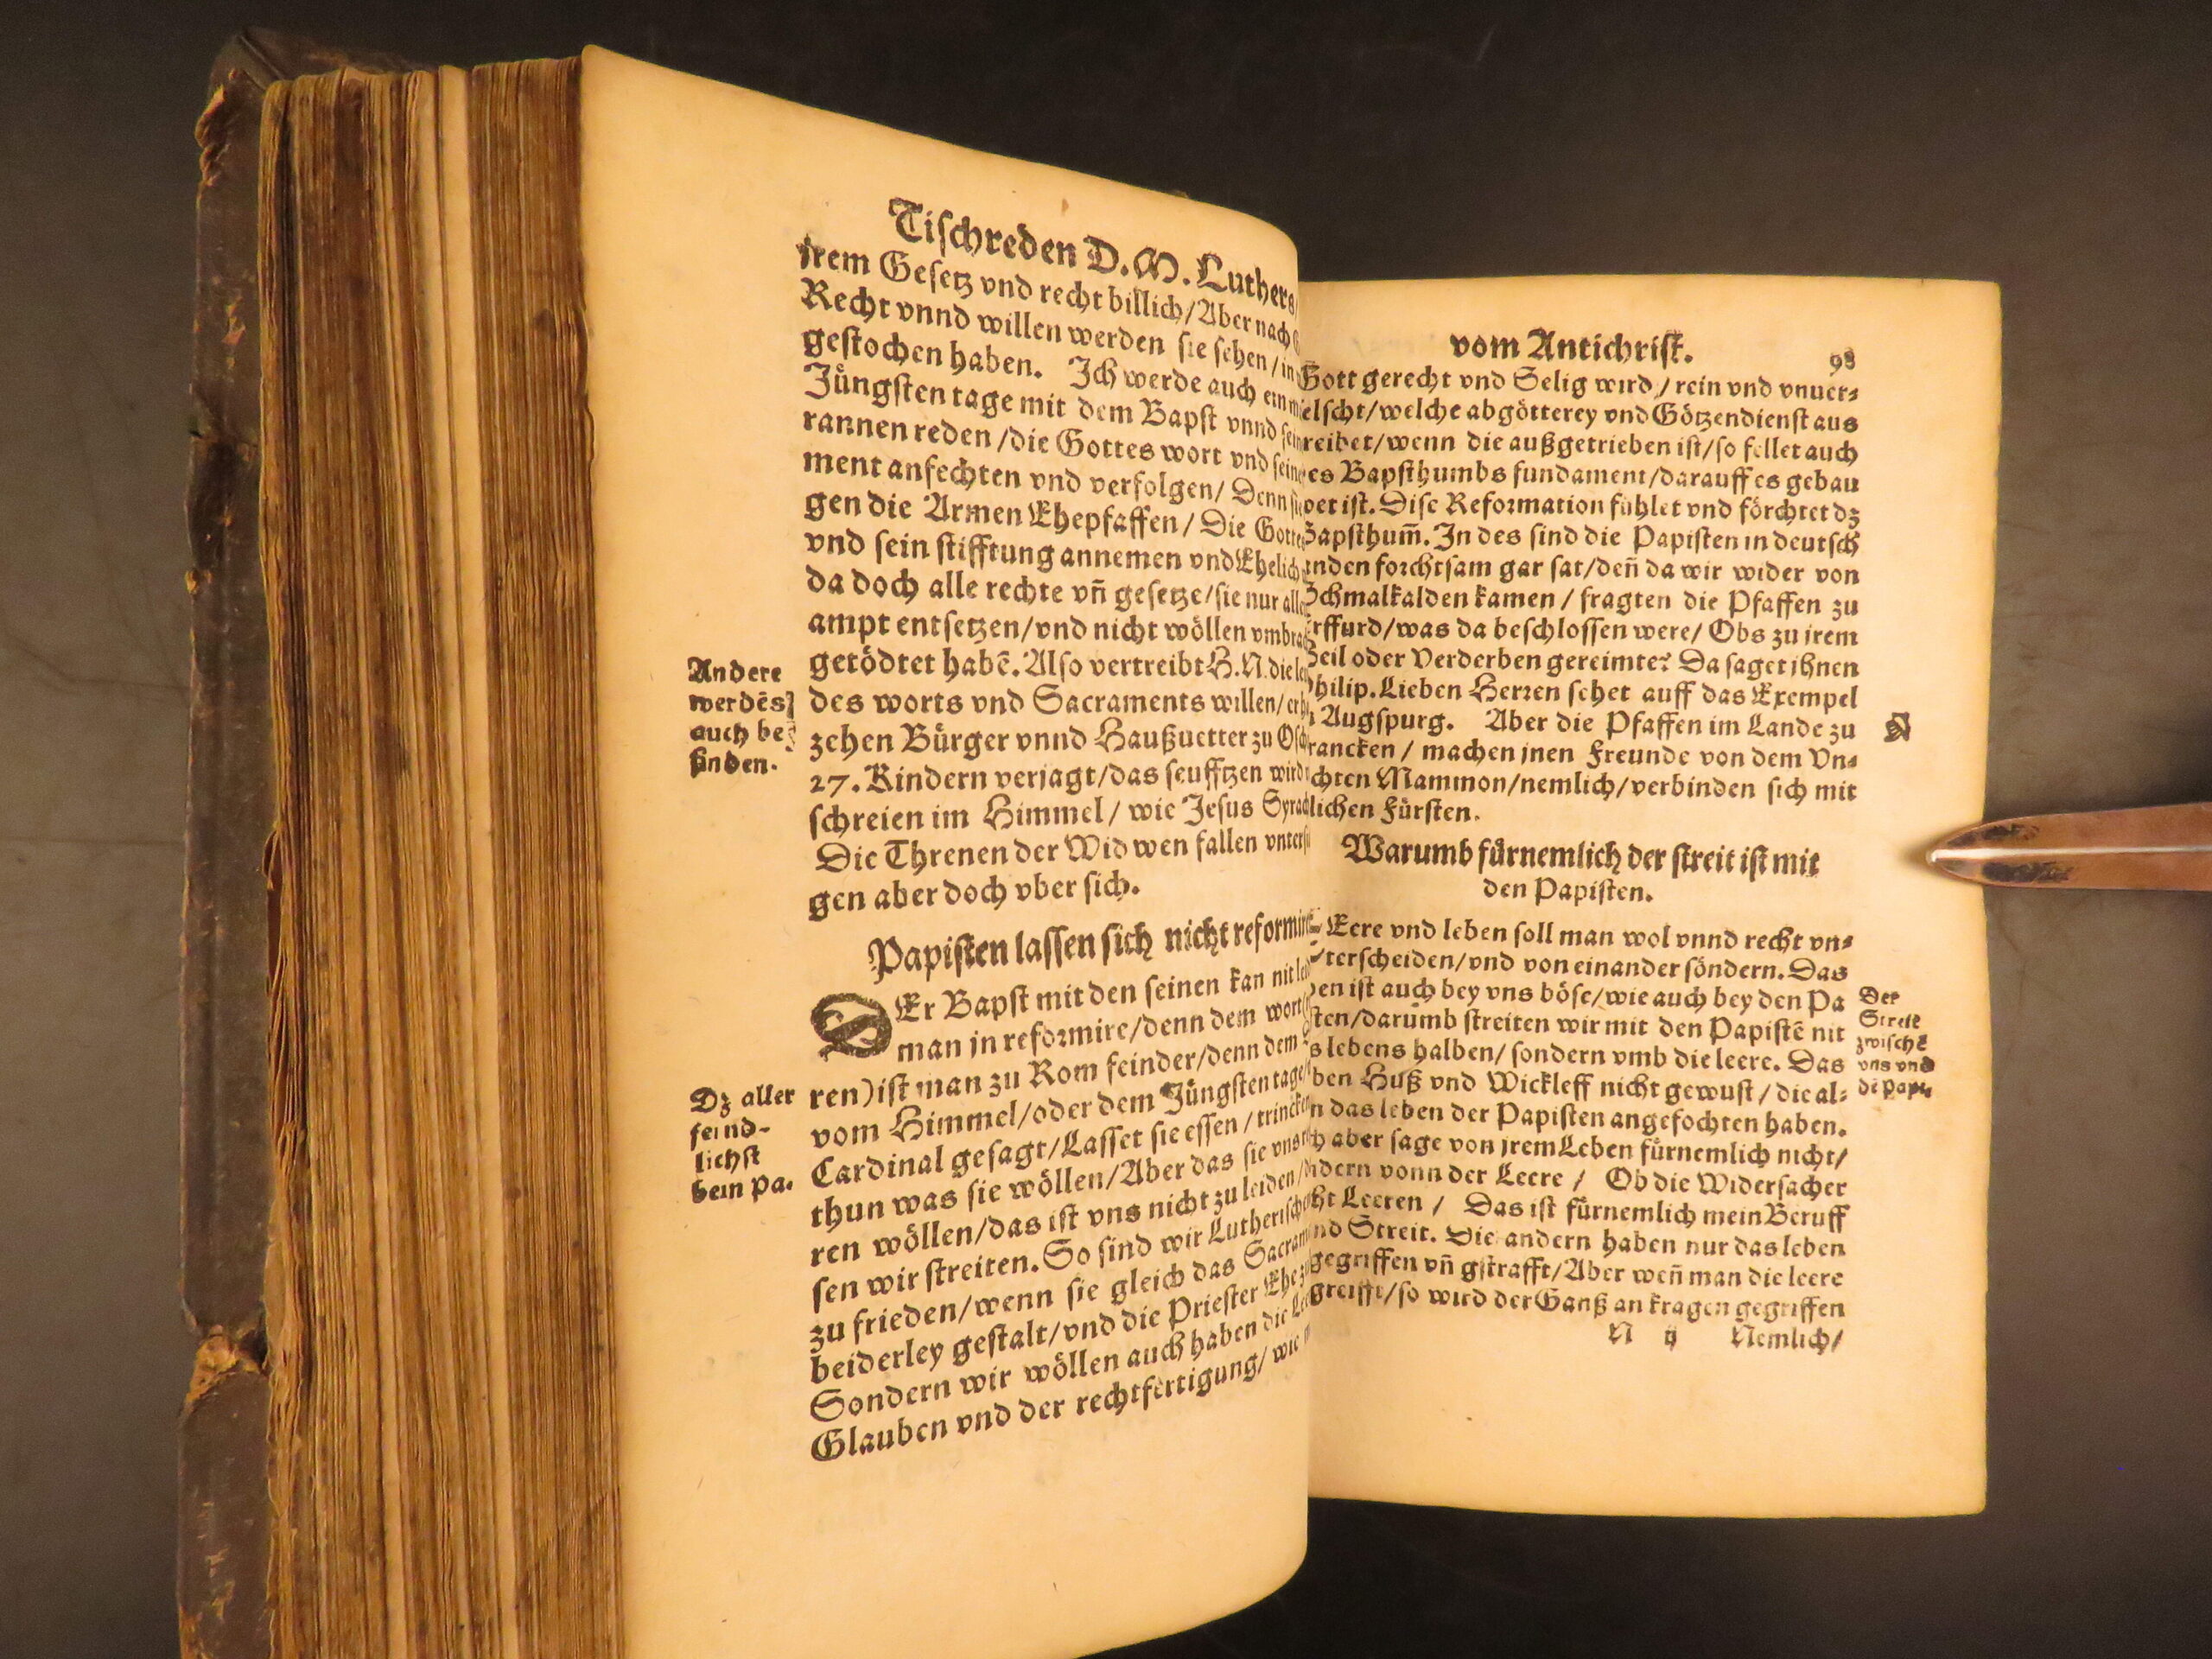 Tischreden D. M. Luthers
irem Gesetz vnd recht billich/Aber nach
Recht vnnd willen werden sie sehen/in
gestochen haben. Ich werde auch
Jüngsten tage mit dem Bapst vnnd
rannen reden/die Gottes wort vnd
ment anfechten vnd verfolgen/Denn
gen die Armen Ehepfaffen/Die
vnd sein stifftung annemen vnd
da doch alle rechte vñ gesetze/sie nur
ampt entsetzen/vnd nicht wöllen
getödtet habē. Also vertreibt H.N. die
des worts vnd Sacraments willen/
zehen Bürger vnnd Haußuetter zu
27. Kindern verjagt/das seufftzen
schreien im Himmel/wie Jesus
Die Threnen der Widwen fallen
gen aber doch vber sich.
Andere
werdēs
auch be
finden.
Papisten lassen sich nicht
DEr Bapst mit den seinen kan nit
man jn reformire/denn dem
ren) ist man zu Rom feinder/denn dem
vom Himmel/oder dem Jüngsten tage/
Cardinal gesagt/Lasset sie essen/
thun was sie wöllen/Aber das sie
ren wöllen/das ist vns nicht zu leiden/
sen wir streiten. So sind wir
zu frieden/wenn sie gleich das
beiderley gestalt/vnd die Priester
Sondern wir wöllen auch haben die
Glauben vnd der rechtfertigung/wie
Dz aller
feind-
lichst
bein Pa-
vom Antichrist. 98
Gott gerecht vnd Selig wird/rein vnd vnuer-
elscht/welche abgötterey vnd Götzendienst aus
reibet/wenn die außgetrieben ist/so fellet auch
es Bapsthumbs fundament/darauff es gebau
wet ist. Dise Reformation fühlet vnd förchtet dz
Bapsthum̄. In des sind die Papisten in deutsch
anden forchtsam gar sat/deñ da wir wider von
Schmalkalden kamen/fragten die Pfaffen zu
Erffurd/was da beschlossen were/Obs zu irem
Heil oder Verderben gereimte? Da saget jhnen
Philip. Lieben Herren sehet auff das Exempel
Augspurg. Aber die Pfaffen im Lande zu
rancken/machen jnen Freunde von dem Vn-
chten Mammon/nemlich/verbinden sich mit
lichen Fürsten.
Warumb fürnemlich der streit ist mit
den Papisten.
Leere vnd leben soll man wol vnnd recht vn-
terscheiden/vnd von einander söndern. Das
ben ist auch bey vns böse/wie auch bey den Pa
sten/darumb streiten wir mit den Papistē nit
s lebens halben/sondern vmb die leere. Das
ben Huß vnd Wickleff nicht gewust/die al-
n das leben der Papisten angefochten haben.
ch aber sage von jrem Leben fürnemlich nicht/
ndern vonn der Leere/Ob die Widersacher
cht Leeren/Das ist fürnemlich mein Beruff
nd Streit. Die andern haben nur das leben
gegriffen vñ gstrafft/Aber weñ man die leere
greifft/so wird der Ganß an kragen gegriffen
N ij Nemlich/
Der
Streit
zwischē
vns vnd
dē Papi-